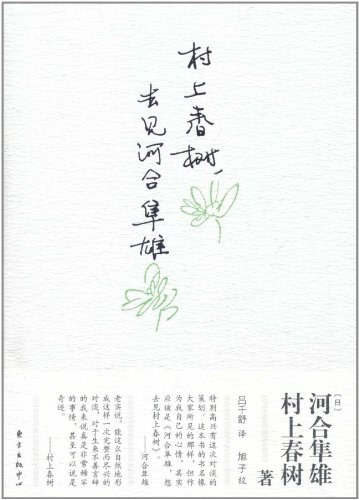 村上春树，
去见河合隼雄
〔日〕
河合隼雄
村上春树
著
吕千舒 译 旭子 校
特别高兴有这次对谈的
策划，这本书的书名像
大家所见的那样，但作
为我自己的心情，其实
应该是《河合隼雄，想
去见村上春树》。
——河合隼雄
老实说，能这么自然地形
成这样一次完整而尽兴的
对谈，对于生来不善言辞
的我来说真是非常稀
奇的事情，甚至可以说是
奇迹。
——村上春树
东方出版中心